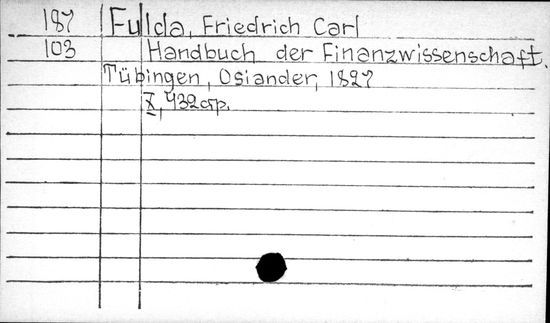 187 Fulda, Friedrich Carl
103 Handbuch der Finanzwissenschaft.
Tübingen, Osiander, 1827
X, 432 стр.